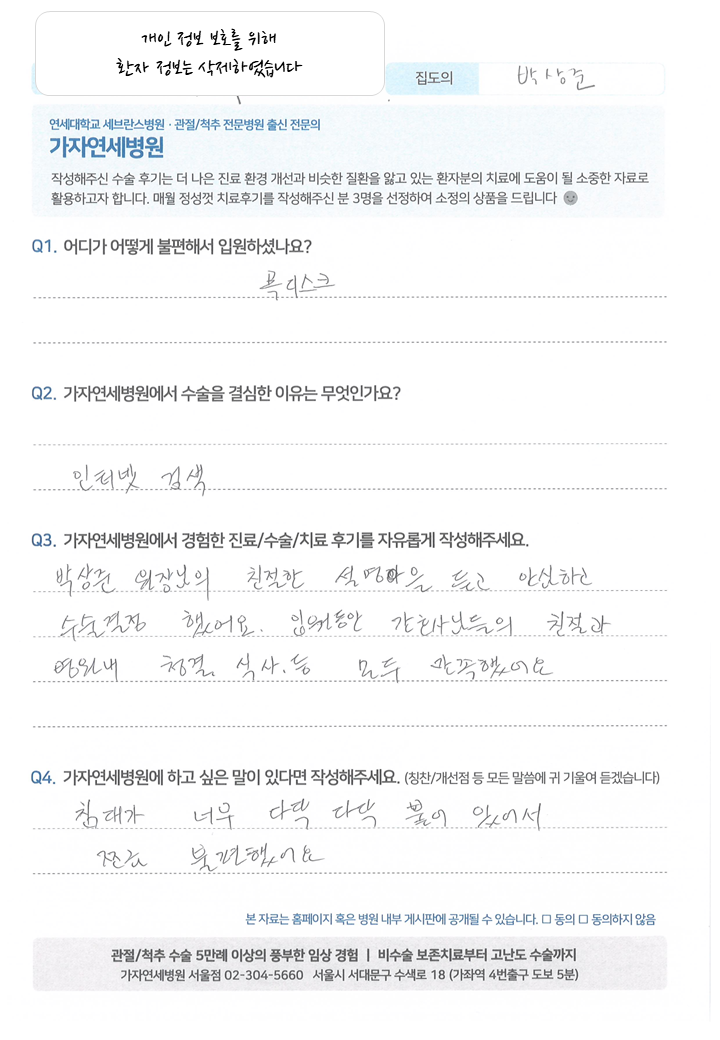 개인 정보 보호를 위해
환자 정보는 삭제하였습니다
집도의 박상준
연세대학교 세브란스병원 · 관절/척추 전문병원 출신 전문의
가자연세병원
작성해주신 수술 후기는 더 나은 진료 환경 개선과 비슷한 질환을 앓고 있는 환자분의 치료에 도움이 될 소중한 자료로
활용하고자 합니다. 매월 정성껏 치료후기를 작성해주신 분 3명을 선정하여 소정의 상품을 드립니다
Q1. 어디가 어떻게 불편해서 입원하셨나요?
목디스크
Q2. 가자연세병원에서 수술을 결심한 이유는 무엇인가요?
인터넷 검색
Q3. 가자연세병원에서 경험한 진료/수술/치료 후기를 자유롭게 작성해주세요.
박상준 원장님의 친절한 설명을 듣고 안심하고
수술결정 했어요. 입원동안 간호사님들의 친절과
병원내 청결, 식사.등 모두 만족했어요
Q4. 가자연세병원에 하고 싶은 말이 있다면 작성해주세요. (칭찬/개선점 등 모든 말씀에 귀 기울여 듣겠습니다)
침대가 너무 다닥 다닥 붙어 있어서
불편했어요
본 자료는 홈페이지 혹은 병원 내부 게시판에 공개될 수 있습니다. □ 동의 □ 동의하지 않음
관절/척추 수술 5만례 이상의 풍부한 임상 경험 | 비수술 보존치료부터 고난도 수술까지
가자연세병원 서울점 02-304-5660 서울시 서대문구 수색로 18 (가좌역 4번출구 도보 5분)